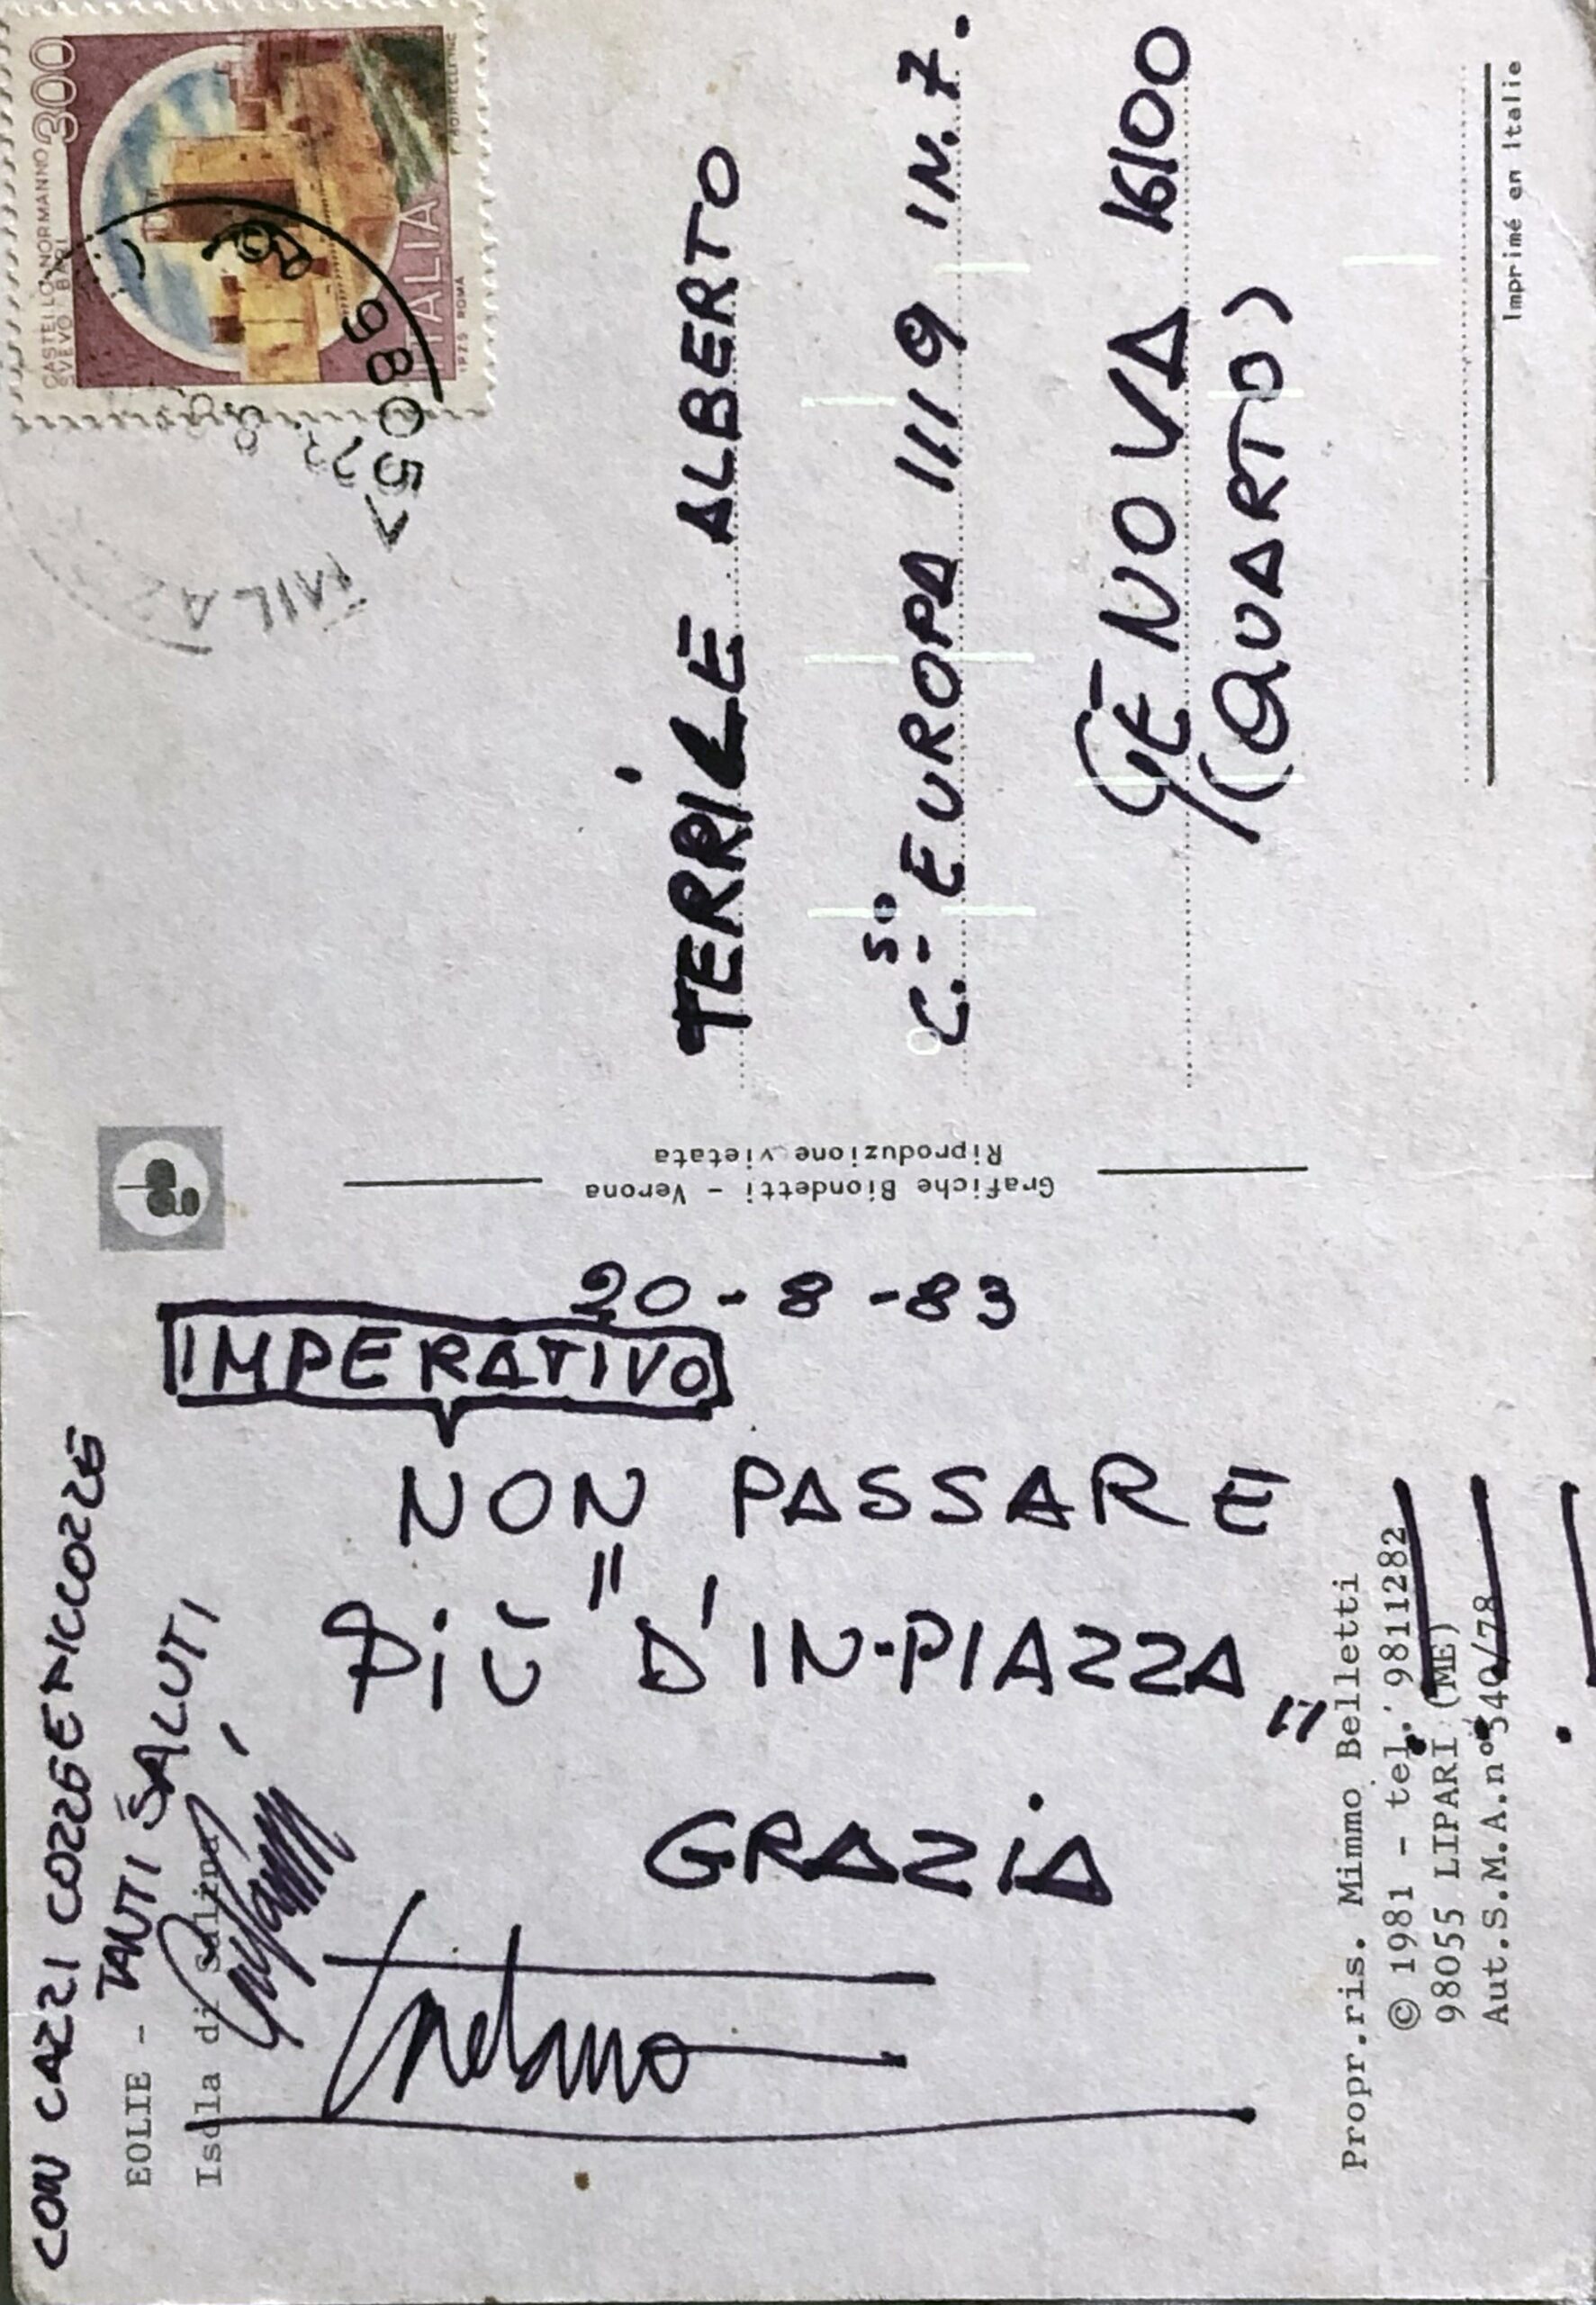 CON CAZZI COZZE E PICCOZZE
TANTI SALUTI
EOLIE -
Isola di Salina
20-8-83
IMPERATIVO
NON PASSARE
PIÙ "D'IN-PIAZZA"
!!!
GRAZIA
Propr.ris. Mimmo Belletti
© 1981 - tel. 9811282
98055 LIPARI (ME)
Aut.S.M.A.n°340/78
Grafiche Biondetti - Verona
Riproduzione vietata
CASTELLO NORMANNO
SVEVO BARI
300
ITALIA
ROMA
9805
TERRILE ALBERTO
C.SO EUROPA 1119 IN.7.
GENOVA 16100
(QUARTO)
Imprimé en Italie